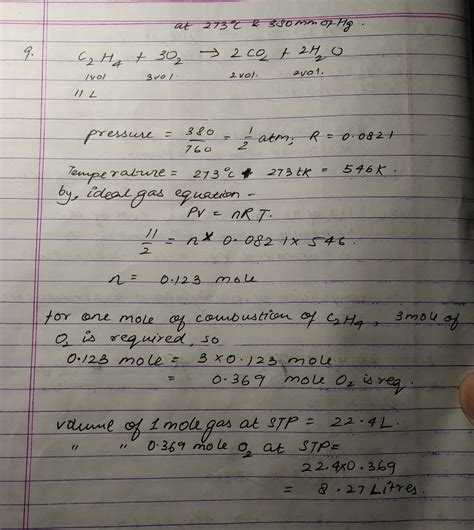 at 273°C & 380 mm of Hg.
9. C2H4 + 3O2 → 2CO2 + 2H2O
1vol 3vol. 2vol. 2vol.
11 L
pressure = 380/760 = 1/2 atm, R = 0.0821
Temperature = 273°C + 273 K = 546K.
by, ideal gas equation -
PV = nRT.
11/2 = n × 0.0821 × 546.
n = 0.123 mole
for one mole of combustion of C2H4, 3 mole of
O2 is required, so
0.123 mole = 3 × 0.123 mole
= 0.369 mole O2 is req.
volume of 1 mole gas at STP = 22.4 L.
" " 0.369 mole O2 at STP =
22.4 × 0.369
= 8.27 Litres.